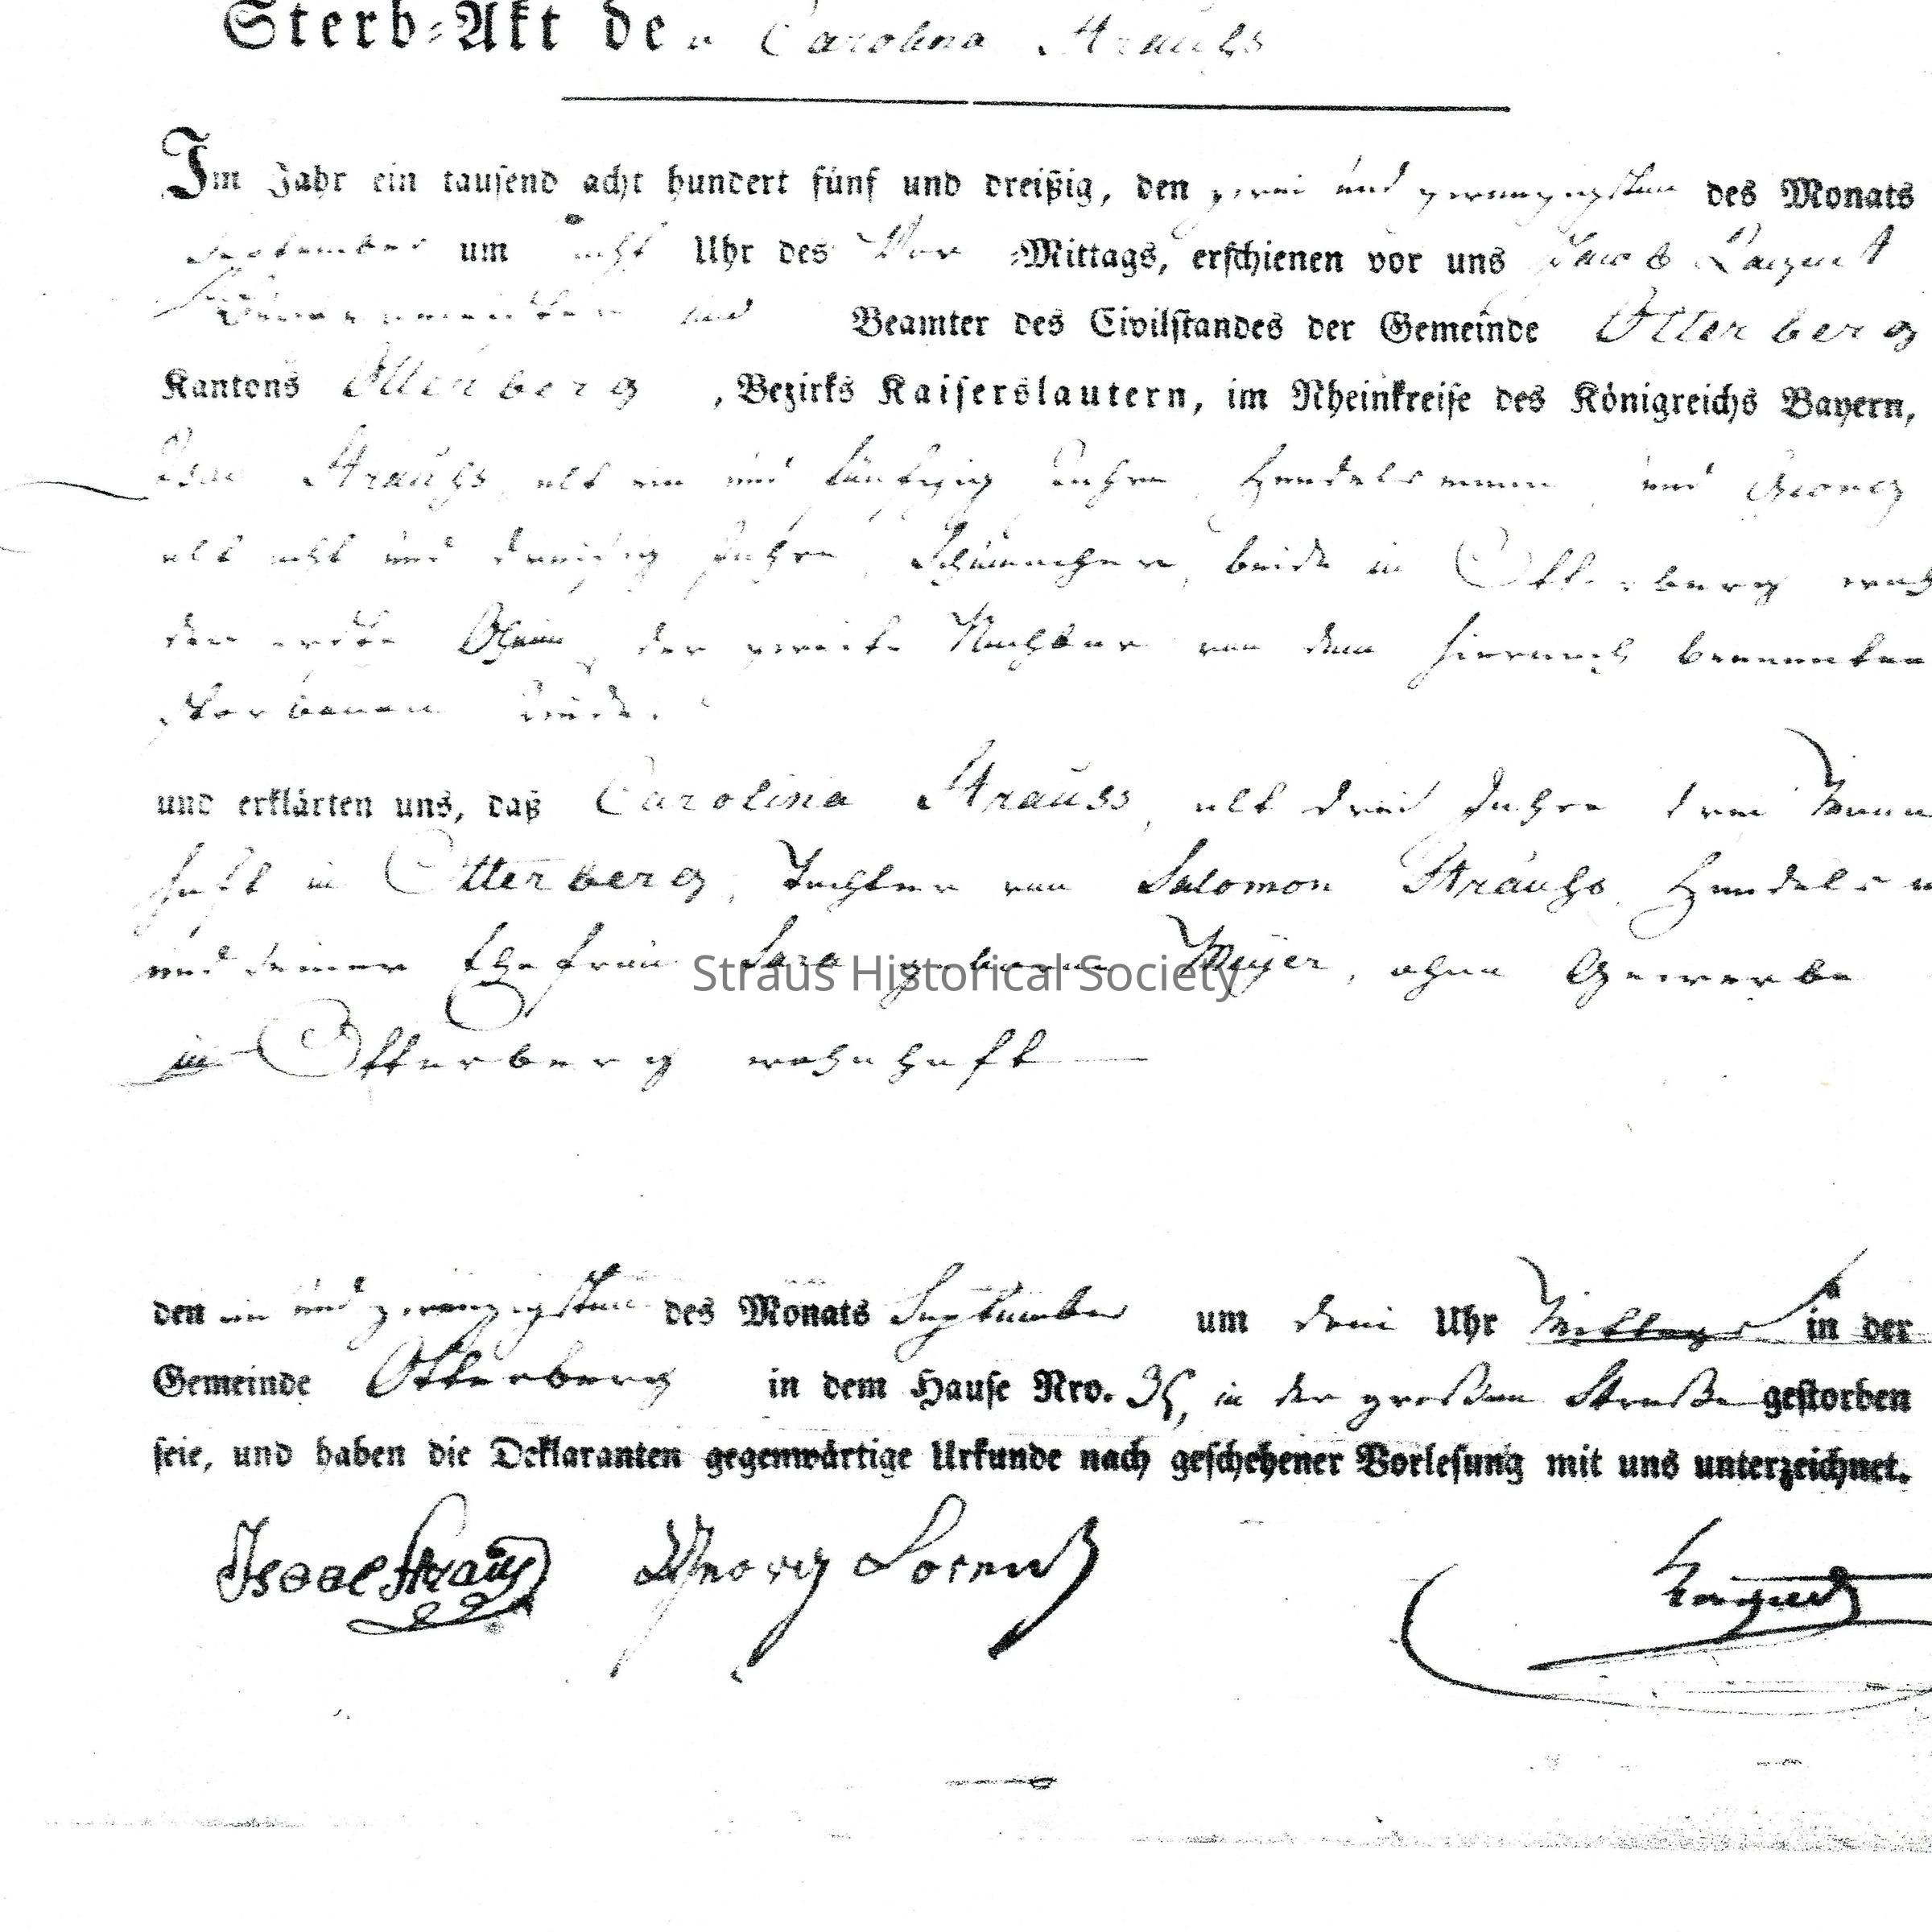 Sterb-Akt der Carolina Strauhs
Im Jahr ein tausend acht hundert fünf und dreißig, den zwei und zwanzigsten des Monats
September um acht Uhr des Vor -Mittags, erschienen vor uns Jacob Laquet
und Beamter des Civilstandes der Gemeinde Otterberg
Kantons Otterberg, Bezirks Kaiserslautern, im Rheinkreise des Königreichs Bayern,
Isac Strauhs, alt ein und fünfzig Jahre, Handelsmann, und Georg
alt acht und dreißig Jahre, Schumacher, beide in Otterberg woh
der erste Oheim, der zweite Nachbar von dem hiernach benannten
storbenen Kinde.
und erklärten uns, daß Carolina Strauss, alt drei Jahre drei Mona
haft in Otterberg, Tochter von Salomon Strauhs, Handelsm
und seiner Ehefrau Sara geborne Meyer, ohne Gewerbe
Straus Historical Society
in Otterberg wohnhaft
den ein und zwanzigsten des Monats September um drei Uhr Mittags in der
Gemeinde Otterberg in dem Hause Nro. 35, in der großen Straße gestorben
seie, und haben die Deklaranten gegenwärtige Urkunde nach geschehener Vorlesung mit uns unterzeichnet.
Isaac Straus Georg Lorentz Laquet